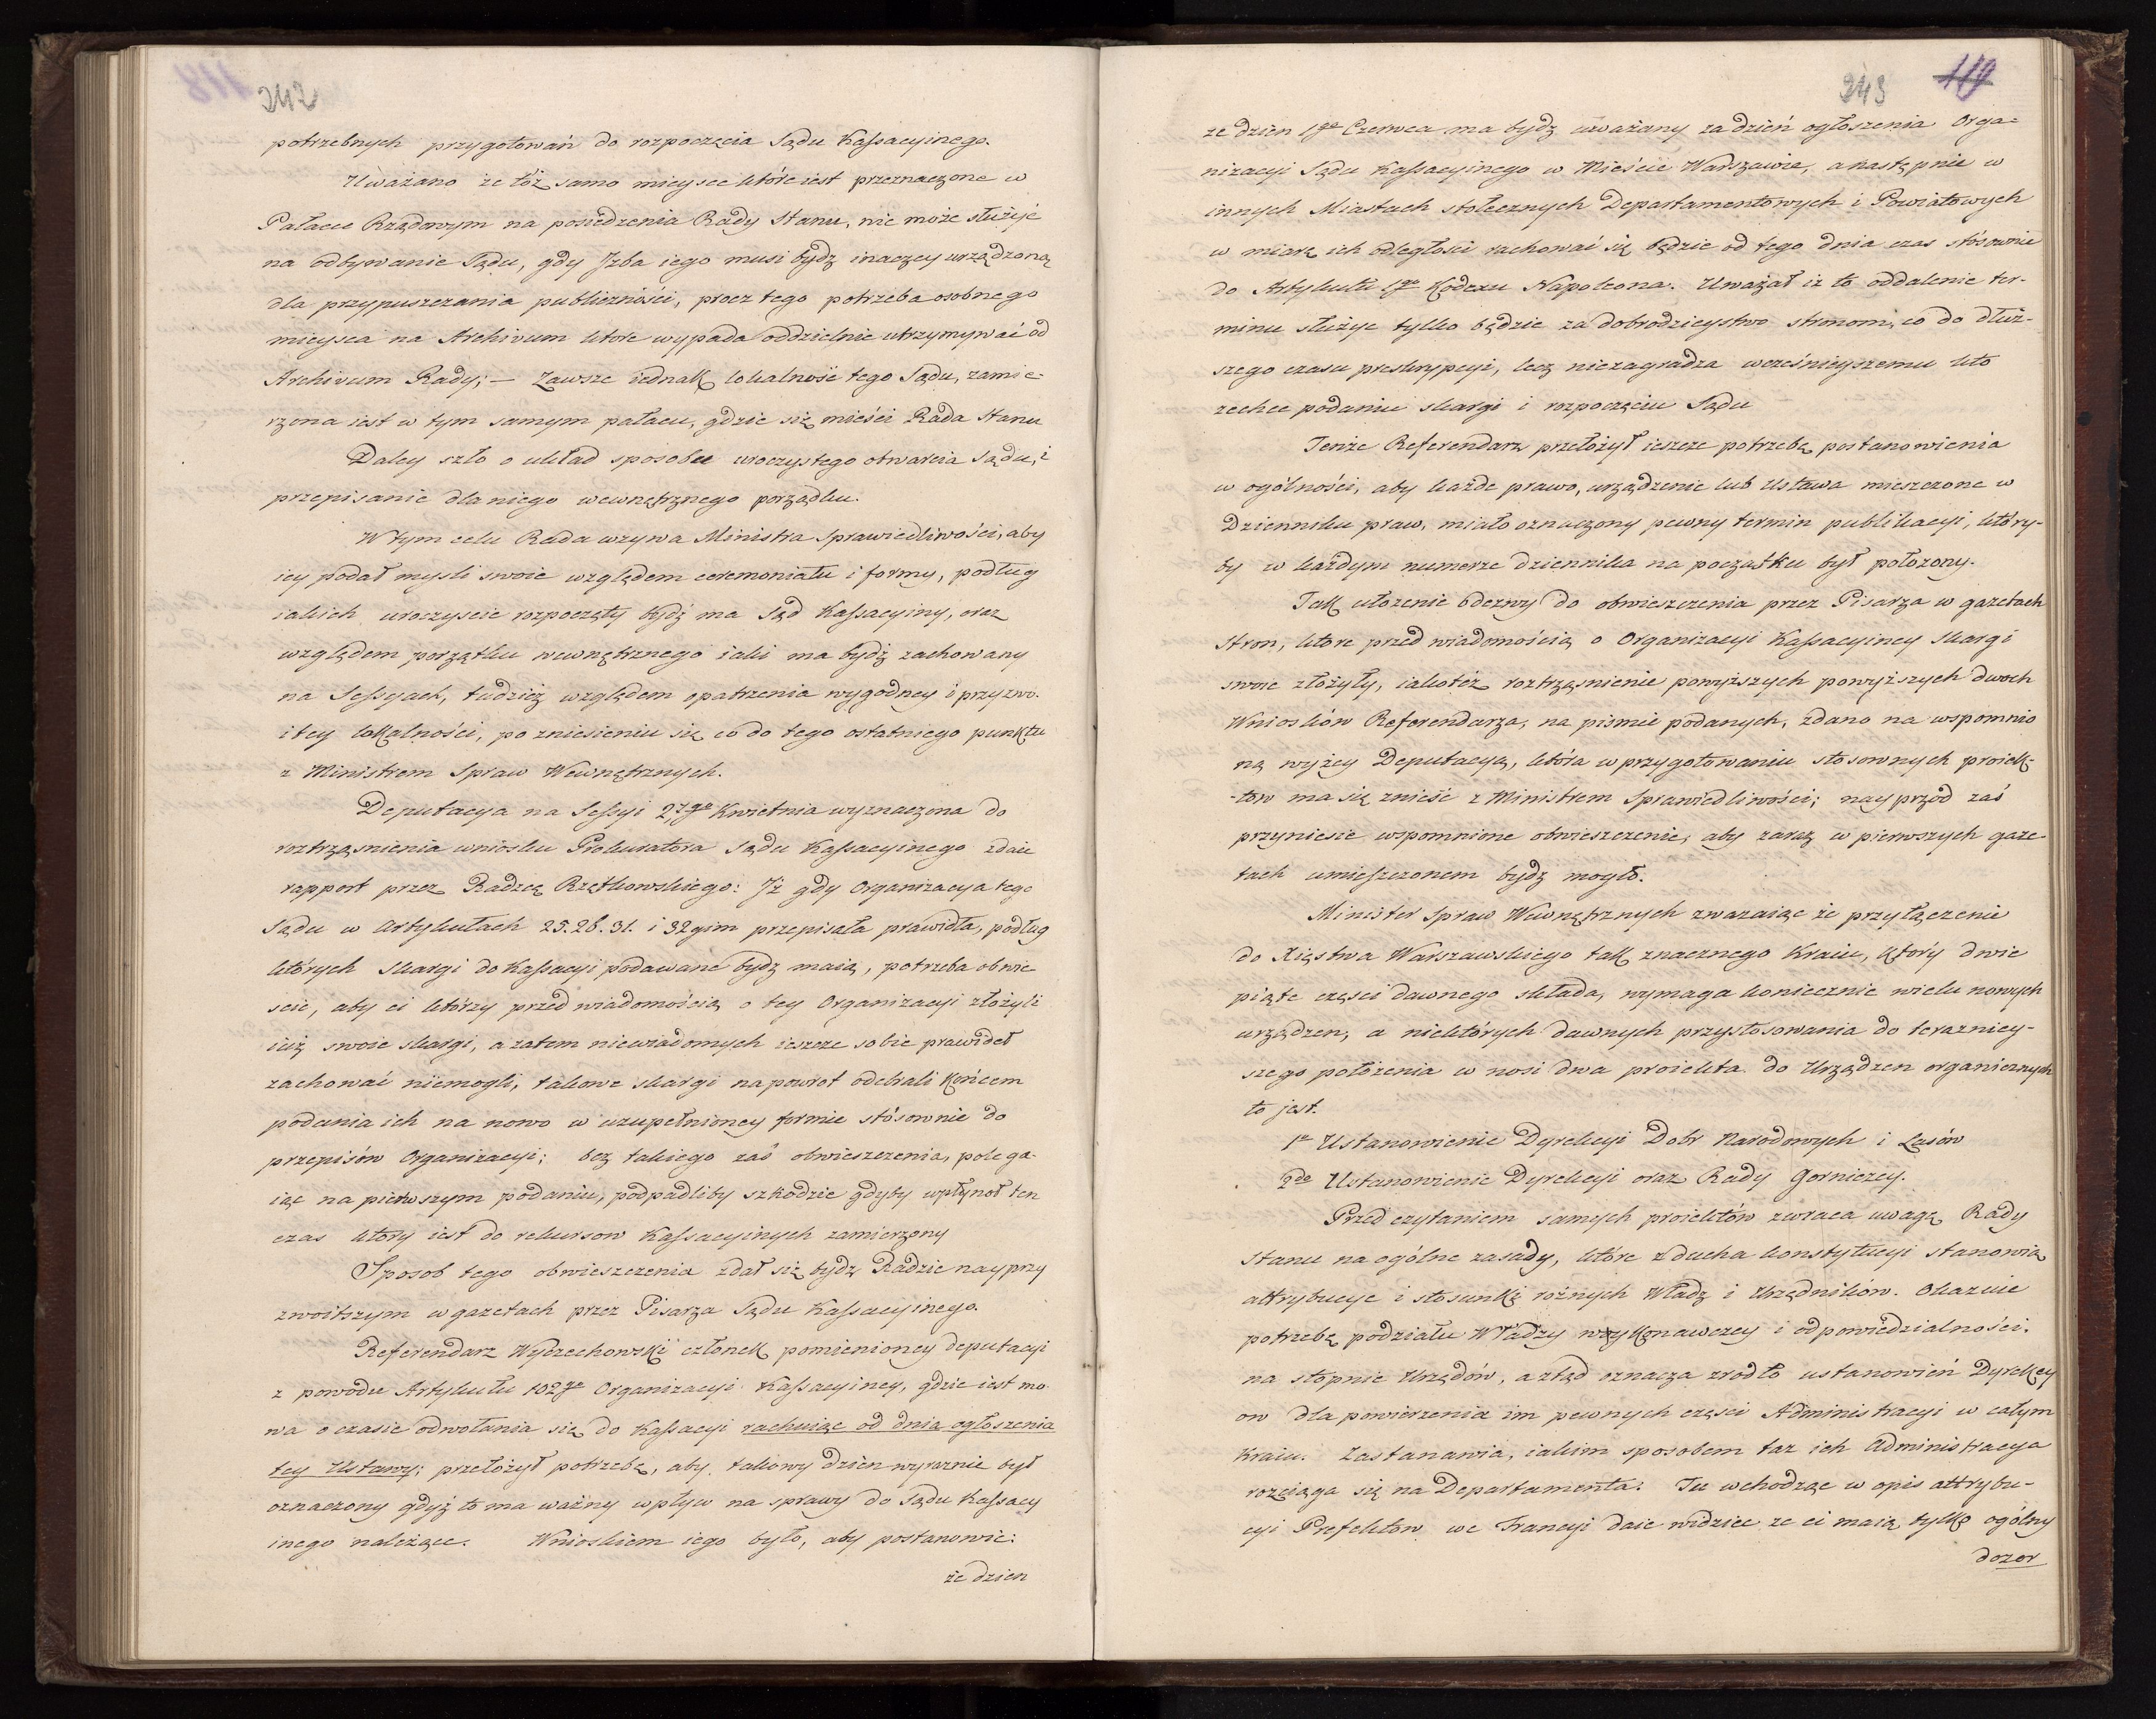 242
potrzebnych przygotowań do rozpoczęcia Sądu Kassacyinego.
Uważano że też samo mieysce które iest przeznaczone w
Pałacu Rządowym na posiedzenia Rady Stanu, nie może służyć
na odbywanie Sądu, gdy Izba iego musi bydź inaczey urządzoną
dla przypuszczania publiczności, procz tego potrzeba osobnego
mieysca na Archivum ktore wypada oddzielnie utrzymywać od
Archivum Rady; — Zawsze iednak lokalność tego Sądu, zamie-
rzona iest w tym samym pałacu, gdzie się mieści Rada Stanu
Daley szło o układ sposobu uroczystego otwarcia Sądu, i
przepisanie dla niego wewnętrznego porządku.
W tym celu Rada wzywa Ministra Sprawiedliwości, aby
iey podał mysli swoie względem ceremoniału i formy, podług
iakich uroczyscie rozpoczęty bydź ma Sąd Kassacyiny, oraz
względem porządku wewnętrznego iaki ma bydź zachowany
na Sessyach, tudzież względem opatrzenia wygodney i przyzwo-
itey lokalności, po zniesieniu się co do tego ostatniego punktu
z Ministrem Spraw Wewnętrznych.
Deputacya na Sessyi 27go Kwietnia wyznaczona do
roztrząśnienia wniosku Prokuratora Sądu Kassacyinego zdaie
rapport przez Radzcę Rzętkowskiego: Iż gdy Organizacya tego
Sądu w Artykułach 25. 26. 31. i 32gim przepisała prawidła, podług
których skargi do Kassacyi podawane bydź maią, potrzeba obwie
scic, aby ci którzy przed wiadomością o tey Organizacyi złożyli
iuż swoie skargi, a zatem niewiadomych ieszcze sobie prawideł
zachować niemogli, takowe skargi napowrot odebrali końcem
podania ich na nowo w uzupełnioney formie stósownie do
przepisów Organizacyi; bez takiego zaś obwieszczenia, polega-
iąc na pierwszym podaniu, podpadliby szkodzie gdyby upłynoł ten
czas ktory iest do rekursow Kassacyinych zamierzony
Sposob tego obwieszczenia zdał się bydź Radzie nayprzy
zwoitszym w gazetach przez Pisarza Sądu Kassacyinego.
Referendarz Wyczechowski członek pomienioney deputacyi
z powodu Artykułu 102go Organizacyi Kassacyiney, gdzie iest mo
wa o czasie odwołania się do Kassacyi rachuiąc od dnia ogłoszenia
tey Ustawy; przełożył potrzebę, aby takowy dzień wyraznie był
oznaczony gdyż to ma ważny wpływ na sprawy do Sądu Kassacy
inego należące. Wnioskiem iego było, aby postanowić:
że dzien
243 119
ze dzien 1go Czerwca ma bydź uważany za dzień ogłoszenia Orga-
nizacyi Sądu Kassacyinego w Mieście Warszawie, a następnie w
innych Miastach stołecznych Departamentowych i Powiatowych
w miarę ich odległości rachować się będzie od tego dnia czas stósownie
do Artykułu 1go Kodexu Napoleona. Uważał iz to oddalenie ter-
minu służyc tylko będzie za dobrodzieystwo stronom, co do dłuż-
szego czasu preskrypcyi, lecz niezagradza wcześnieyszemu kto
zechce podaniu skargi i rozpoczęciu Sądu
Tenże Referendarz przełożył ieszcze potrzebę postanowienia
w ogólności, aby każde prawo, urządzenie lub Ustawa mieszczone w
Dzienniku praw, miało oznaczony pewny termin publikacyi, który-
by w każdym numerze dziennika na początku był położony.
Tak ułożenie odezwy do obwieszczenia przez Pisarza w gazetach
Stron, ktore przed wiadomością o Organizacyi Kassacyiney skargi
swoie złożyły, iakotéż roztrząśnienie powyższych powyższych dwoch
Wniosków Referendarza, na pismie podanych, zdano na wspomnio
ną wyżey Deputacyą, która w przygotowaniu stosownych proiek-
-tow ma się znieść z Ministrem Sprawiedliwości; nayprzod zaś
przyniesie wspomnione obwieszczenie, aby zaraz w pierwszych gaze-
tach umieszczonem bydź mogło.
Minister Spraw Wewnętrznych zwazaiąc że przyłączenie
do Xięstwa Warszawskiego tak znacznego Kraiu, który dwie
piąte części dawnego składa, wymaga koniecznie wielu nowych
urządzen, a niektórych dawnych przystosowania do teraźniey-
szego położenia w nosi dwa proiekta do Urządzen organicznych
to jest.
1e Ustanowienie Dyrekcyi Dobr Narodowych i Lasów
2de Ustanowienie Dyrekcyi oraz Rady Gorniczey.
Przed czytaniem samych proiektów zwraca uwagę Rady
Stanu na ogólne zasady, które z ducha konstytucyi stanowią
attrybucye i stosunki rożnych Władz i Urzędników. Okazuie
potrzebę podziału Władzy wykonawczey i odpowiedzialności.
na stopnie Urzędów, a ztąd oznacza zrodło ustanowień Dyrekcy
ow dla powierzenia im pewnych części Administracyi w całym
Kraiu. Zastanawia, iakim sposobem taz ich Administracya
rozciąga się na Departamenta. Tu wchodząc w opis attrybu-
cyi Prefektow we Francyi daie widziec ze ci maią tylko ogólny
dozor